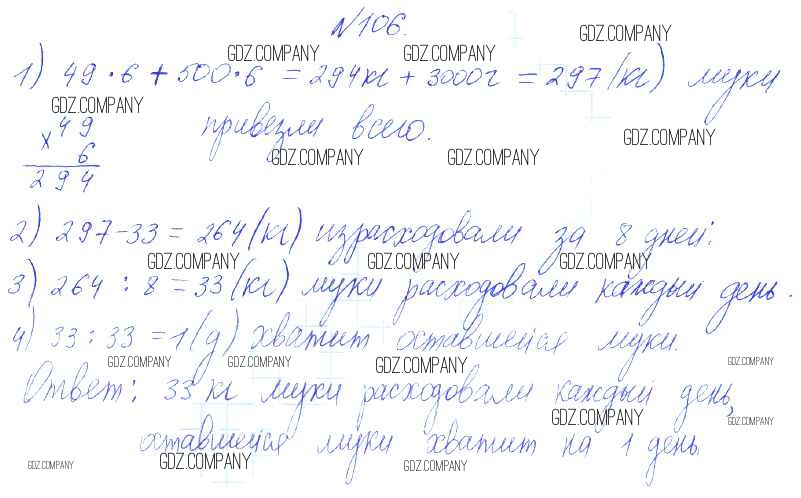 №106.
GDZ.COMPANY GDZ.COMPANY GDZ.COMPANY
1) 49·6+500·6=294кг+3000г=297(кг) муки
GDZ.COMPANY
привезли всего.
GDZ.COMPANY
× 49
6
294
GDZ.COMPANY GDZ.COMPANY
2) 297-33=264(кг) израсходовали за 8 дней.
GDZ.COMPANY GDZ.COMPANY GDZ.COMPANY
3) 264:8=33(кг) муки расходовали каждый день.
4) 33:33=1(д) хватит оставшейся муки.
GDZ.COMPANY GDZ.COMPANY GDZ.COMPANY GDZ.COMPANY
Ответ: 33 кг муки расходовали каждый день,
GDZ.COMPANY GDZ.COMPANY
оставшейся муки хватит на 1 день.
GDZ.COMPANY GDZ.COMPANY GDZ.COMPANY